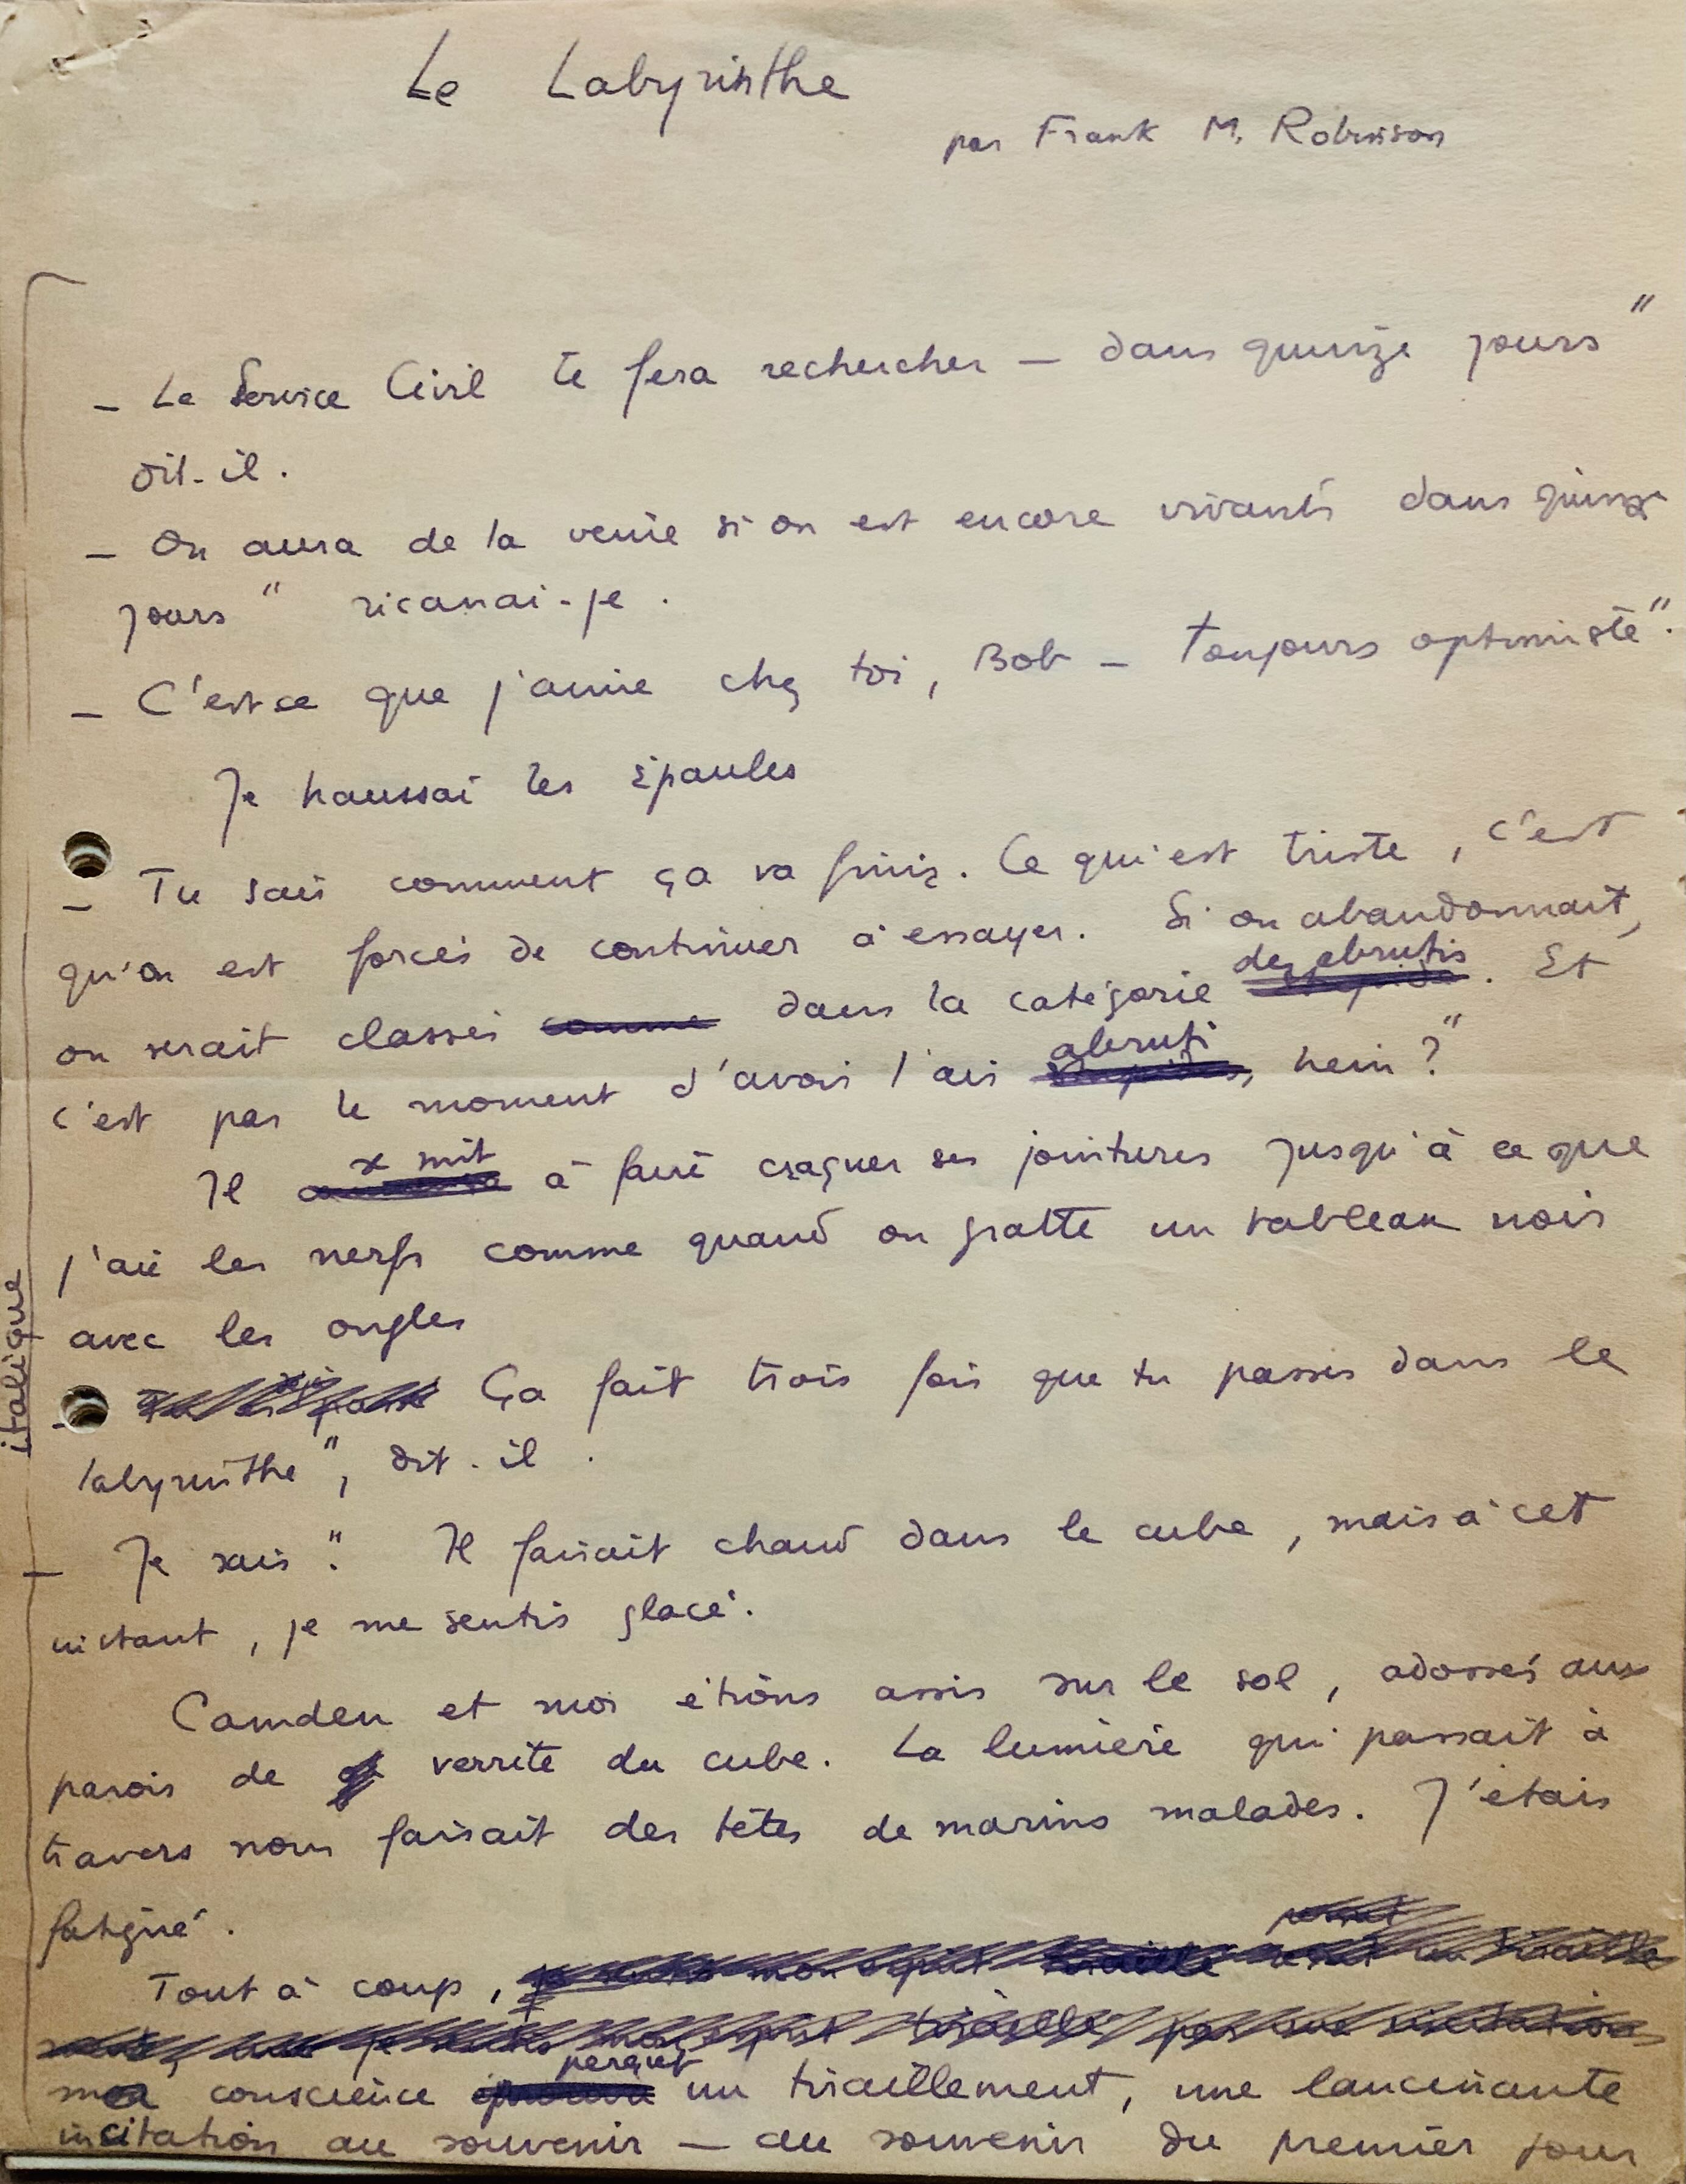 Le Labyrinthe
par Frank M. Robinson
— Le Service Civil te fera rechercher — dans quinze jours"
dit-il.
— On aura de la veine si on est encore vivants dans quinze
jours" ricanai-je.
— C'est ce que j'aime chez toi, Bob — toujours optimiste".
Je haussai les épaules
— Tu sais comment ça va finir. Ce qui est triste, c'est
qu'on est forcés de continuer à essayer. Si on abandonnait,
on serait classés comme dans la catégorie des abrutis. Et
c'est pas le moment d'avoir l'air abruti, hein ?"
Il se mit à faire craquer ses jointures jusqu'à ce que
j'aie les nerfs comme quand on gratte un tableau noir
avec les ongles
— Ça fait trois fois que tu passes dans le
labyrinthe", dit-il.
— Je sais". Il faisait chaud dans le cube, mais à cet
instant, je me sentis glacé.
Camden et moi étions assis sur le sol, adossés aux
parois de verrite du cube. La lumière qui passait à
travers nous faisait des têtes de marins malades. J'étais
fatigué.
Tout à coup,
ma conscience perçut un tiraillement, une lancinante
incitation au souvenir — au souvenir du premier jour
italique